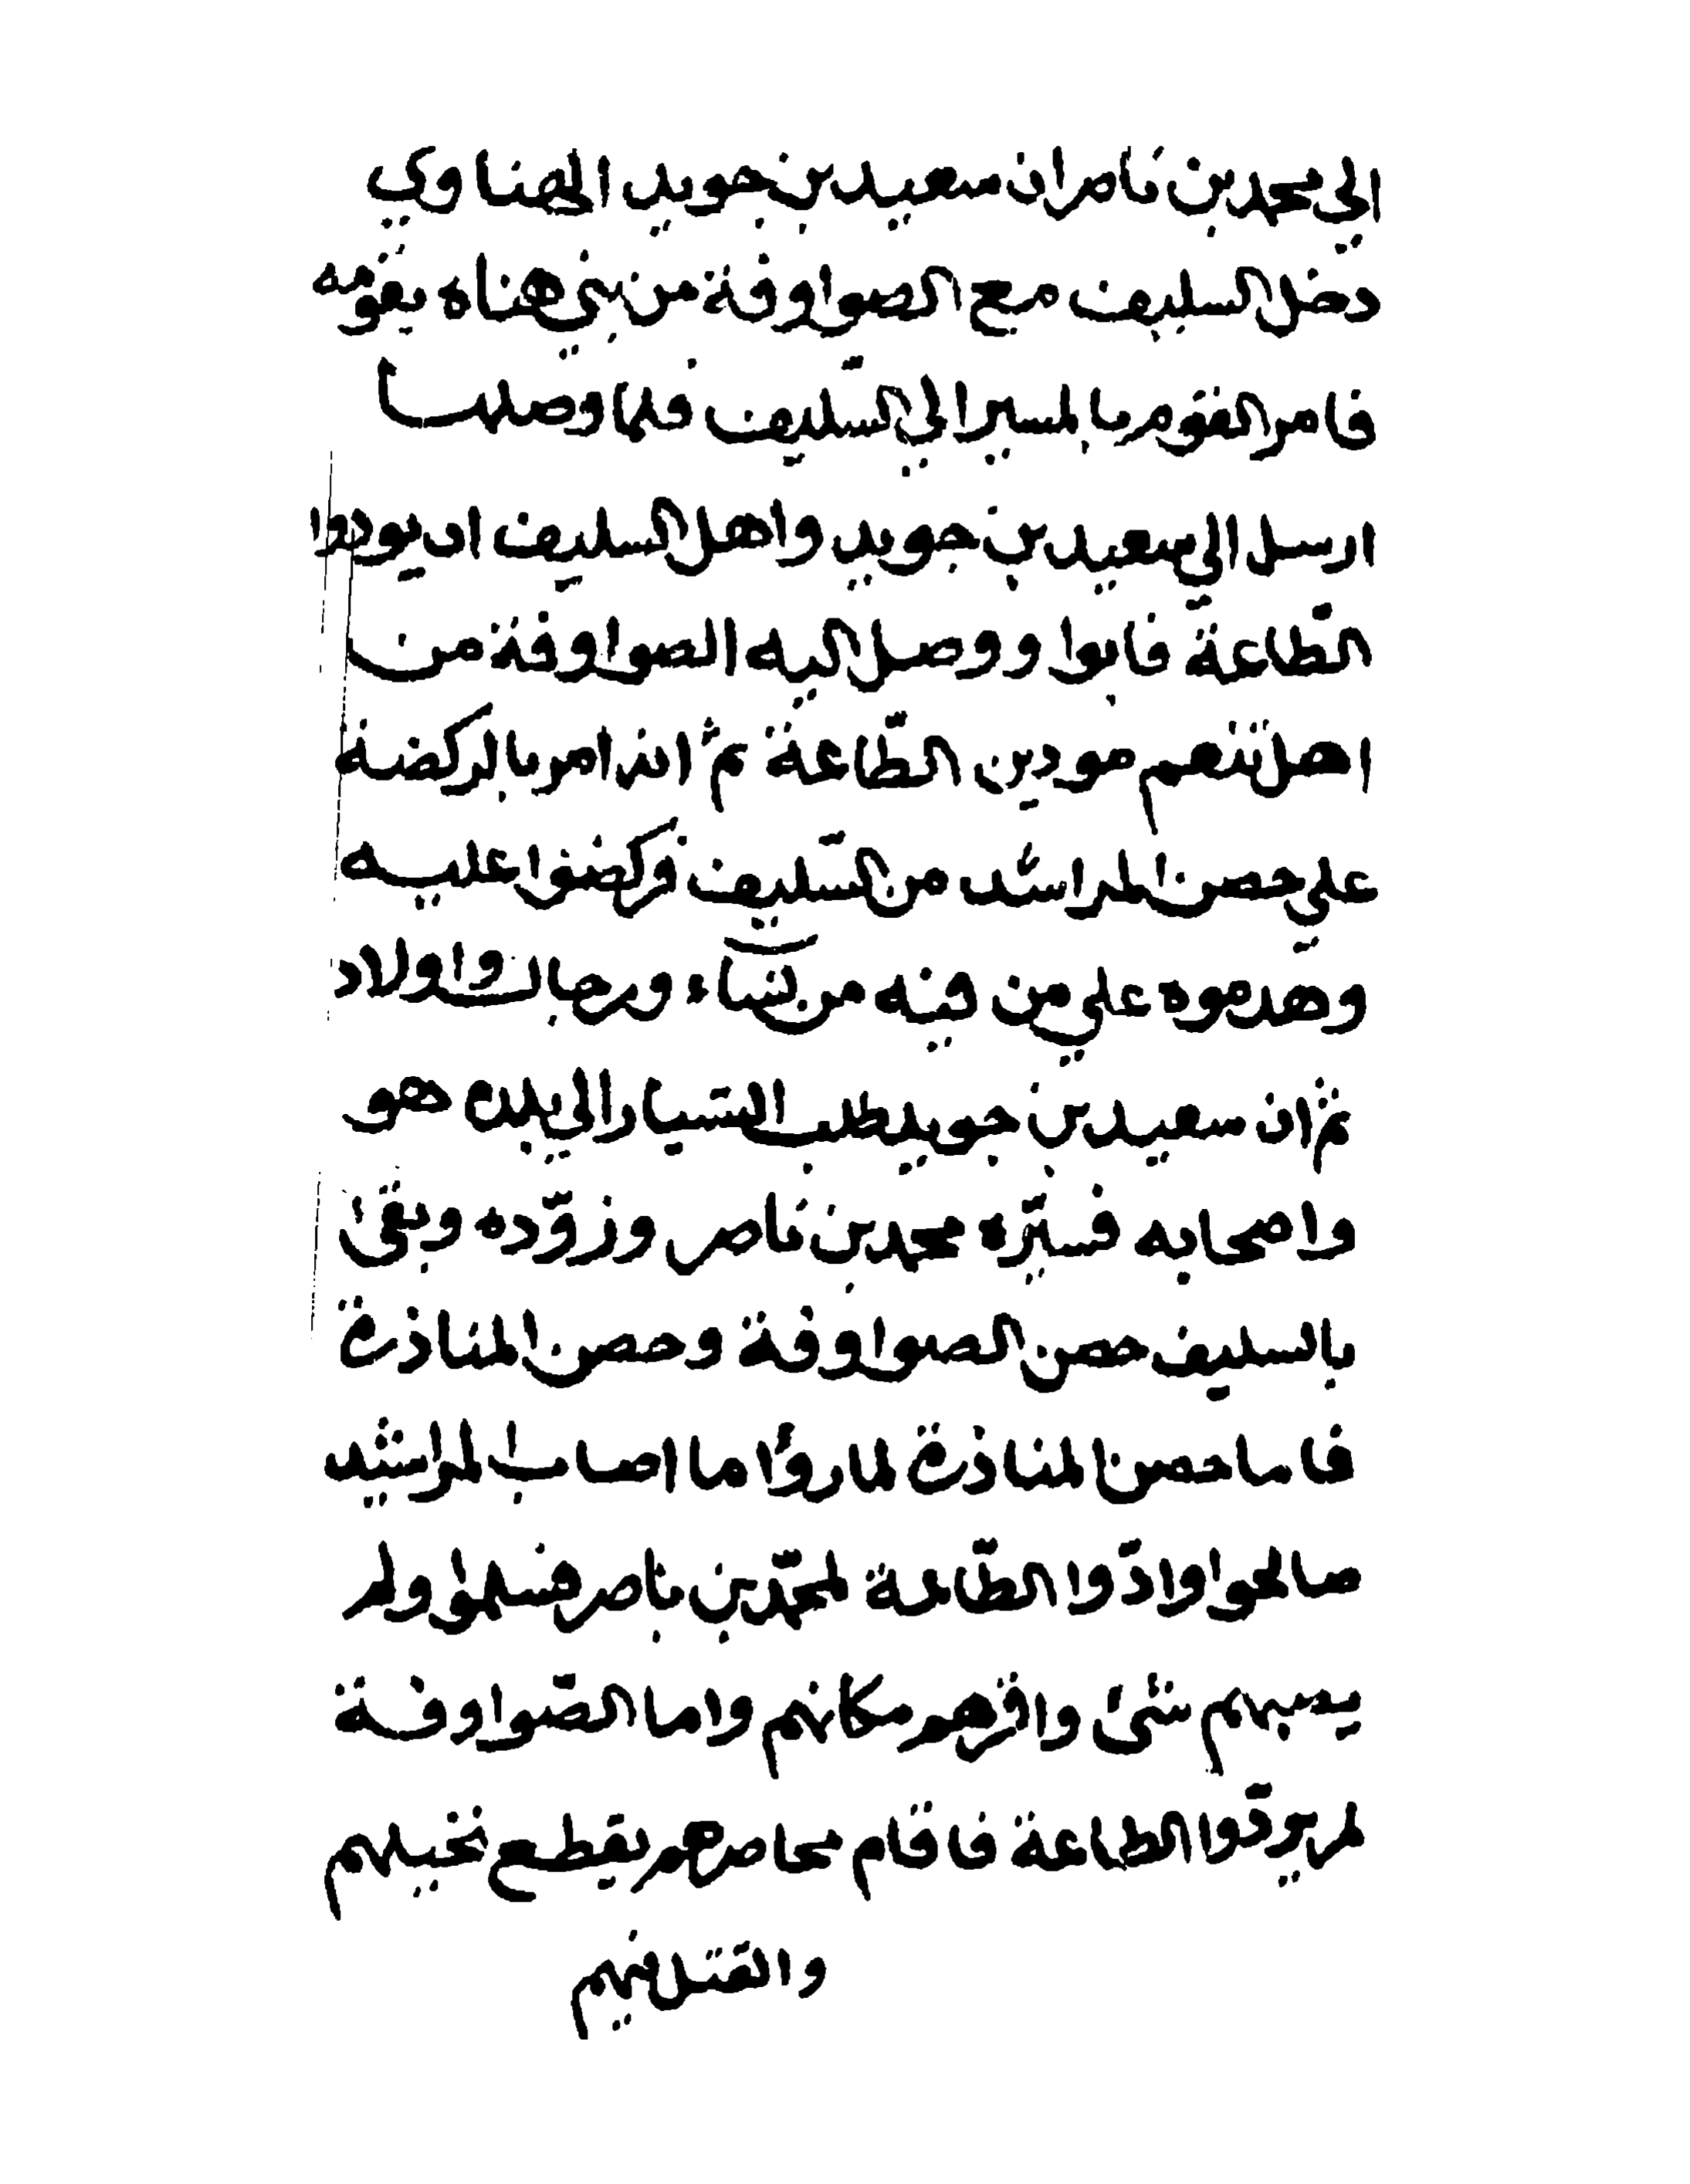 الي محمد بن ناصر ان سعيد بن جويد الهناوي
دخل السليف مع الصواوفة من بني هناه بقومه
فامر القوم بالمسير الي السّليف فلما وصلها
ارسل الي سعيد بن جويد واهل السليف ان يودوا
الطّاعة فابوا ووصل اليه الصواوفة من
اهل تنعم مودين الطّاعة ثم انه امر بالركضة
علي حصن المراشد من السّليف فركضوا عليه
وهدموه علي من فيه من نسآء ورجال واولاد
ثم ان سعيد بن جويد طلب السّيار الي بلده هو
واصحابه فسيّره محمد بن ناصر وزوّده وبقئ
بالسليف حصن الصواوفة وحصن المناذرة
فاما حصن المناذرة لما روا ما اصاب المراشيد
صالحوا وادّوا الطّاعة لمحمّد بن ناصر فسلموا ولم
يصبهم شئ واقرهم مكانهم واما الصّواوفة
لم يودّوا الطاعة فاقام محاصرهم يقطع نخيلهم
والقتل فيهم